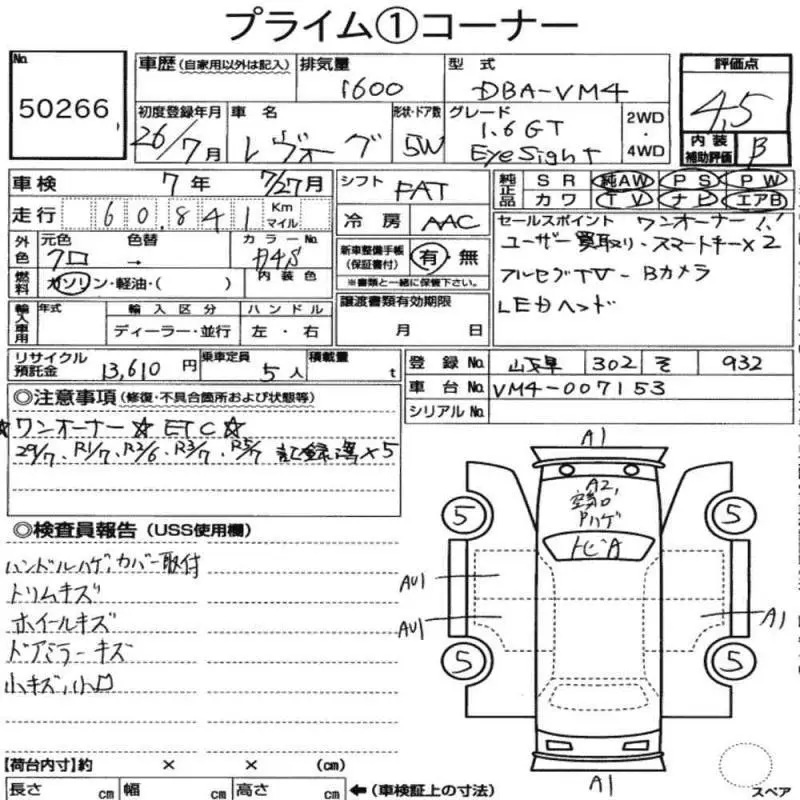 プライム①コーナー
No. 50266
車歴 (自家用以外は記入)
排気量 1600
型式 DBA-VM4
評価点 4.5
内装補助評価 B
初度登録年月 26/7月
車名 レヴォーグ
形状・ドア数 5W
グレード 1.6GT EyeSight
2WD・4WD
車検 7年 7/27月
シフト FAT
純正品 SR 純AW PS PW
カワ TV ナビ エアB
走行 60,841 Km マイル
冷房 AAC
セールスポイント ワンオーナー!!
ユーザー買取り・スマートキー×2
フルセグTV・Bカメラ
LEDヘッド
外色 元色 クロ 色替 →
カラーNo. D4S
新車整備手帳(保証書付) 有・無
※書類と一緒に保管下さい。
燃料 ガソリン・軽油・( )
内装色
輸入車用 年式 輸入区分 ハンドル
ディーラー・並行 左・右
譲渡書類有効期限
月 日
リサイクル預託金 13,610円
乗車定員 5人
積載量 t
登録No. 302 そ 932
車台No. VM4-007153
シリアルNo.
◎注意事項 (修復・不具合箇所および状態等)
☆ワンオーナー☆ETC☆
29/7、R1/7、R2/6、R3/7、R5/7 記録簿×5
◎検査員報告 (USS使用欄)
ハンドルハゲ、カバー取付
トリムキズ
ホイールキズ
ドアミラーキズ
小キズ、小凹
A1
A2,
Pハゲ
トビA
5 5
AU1
AU1
A1
5 5
A1
スペア
【荷台内寸】約 × × (cm)
長さ cm 幅 cm 高さ cm ←(車検証上の寸法)